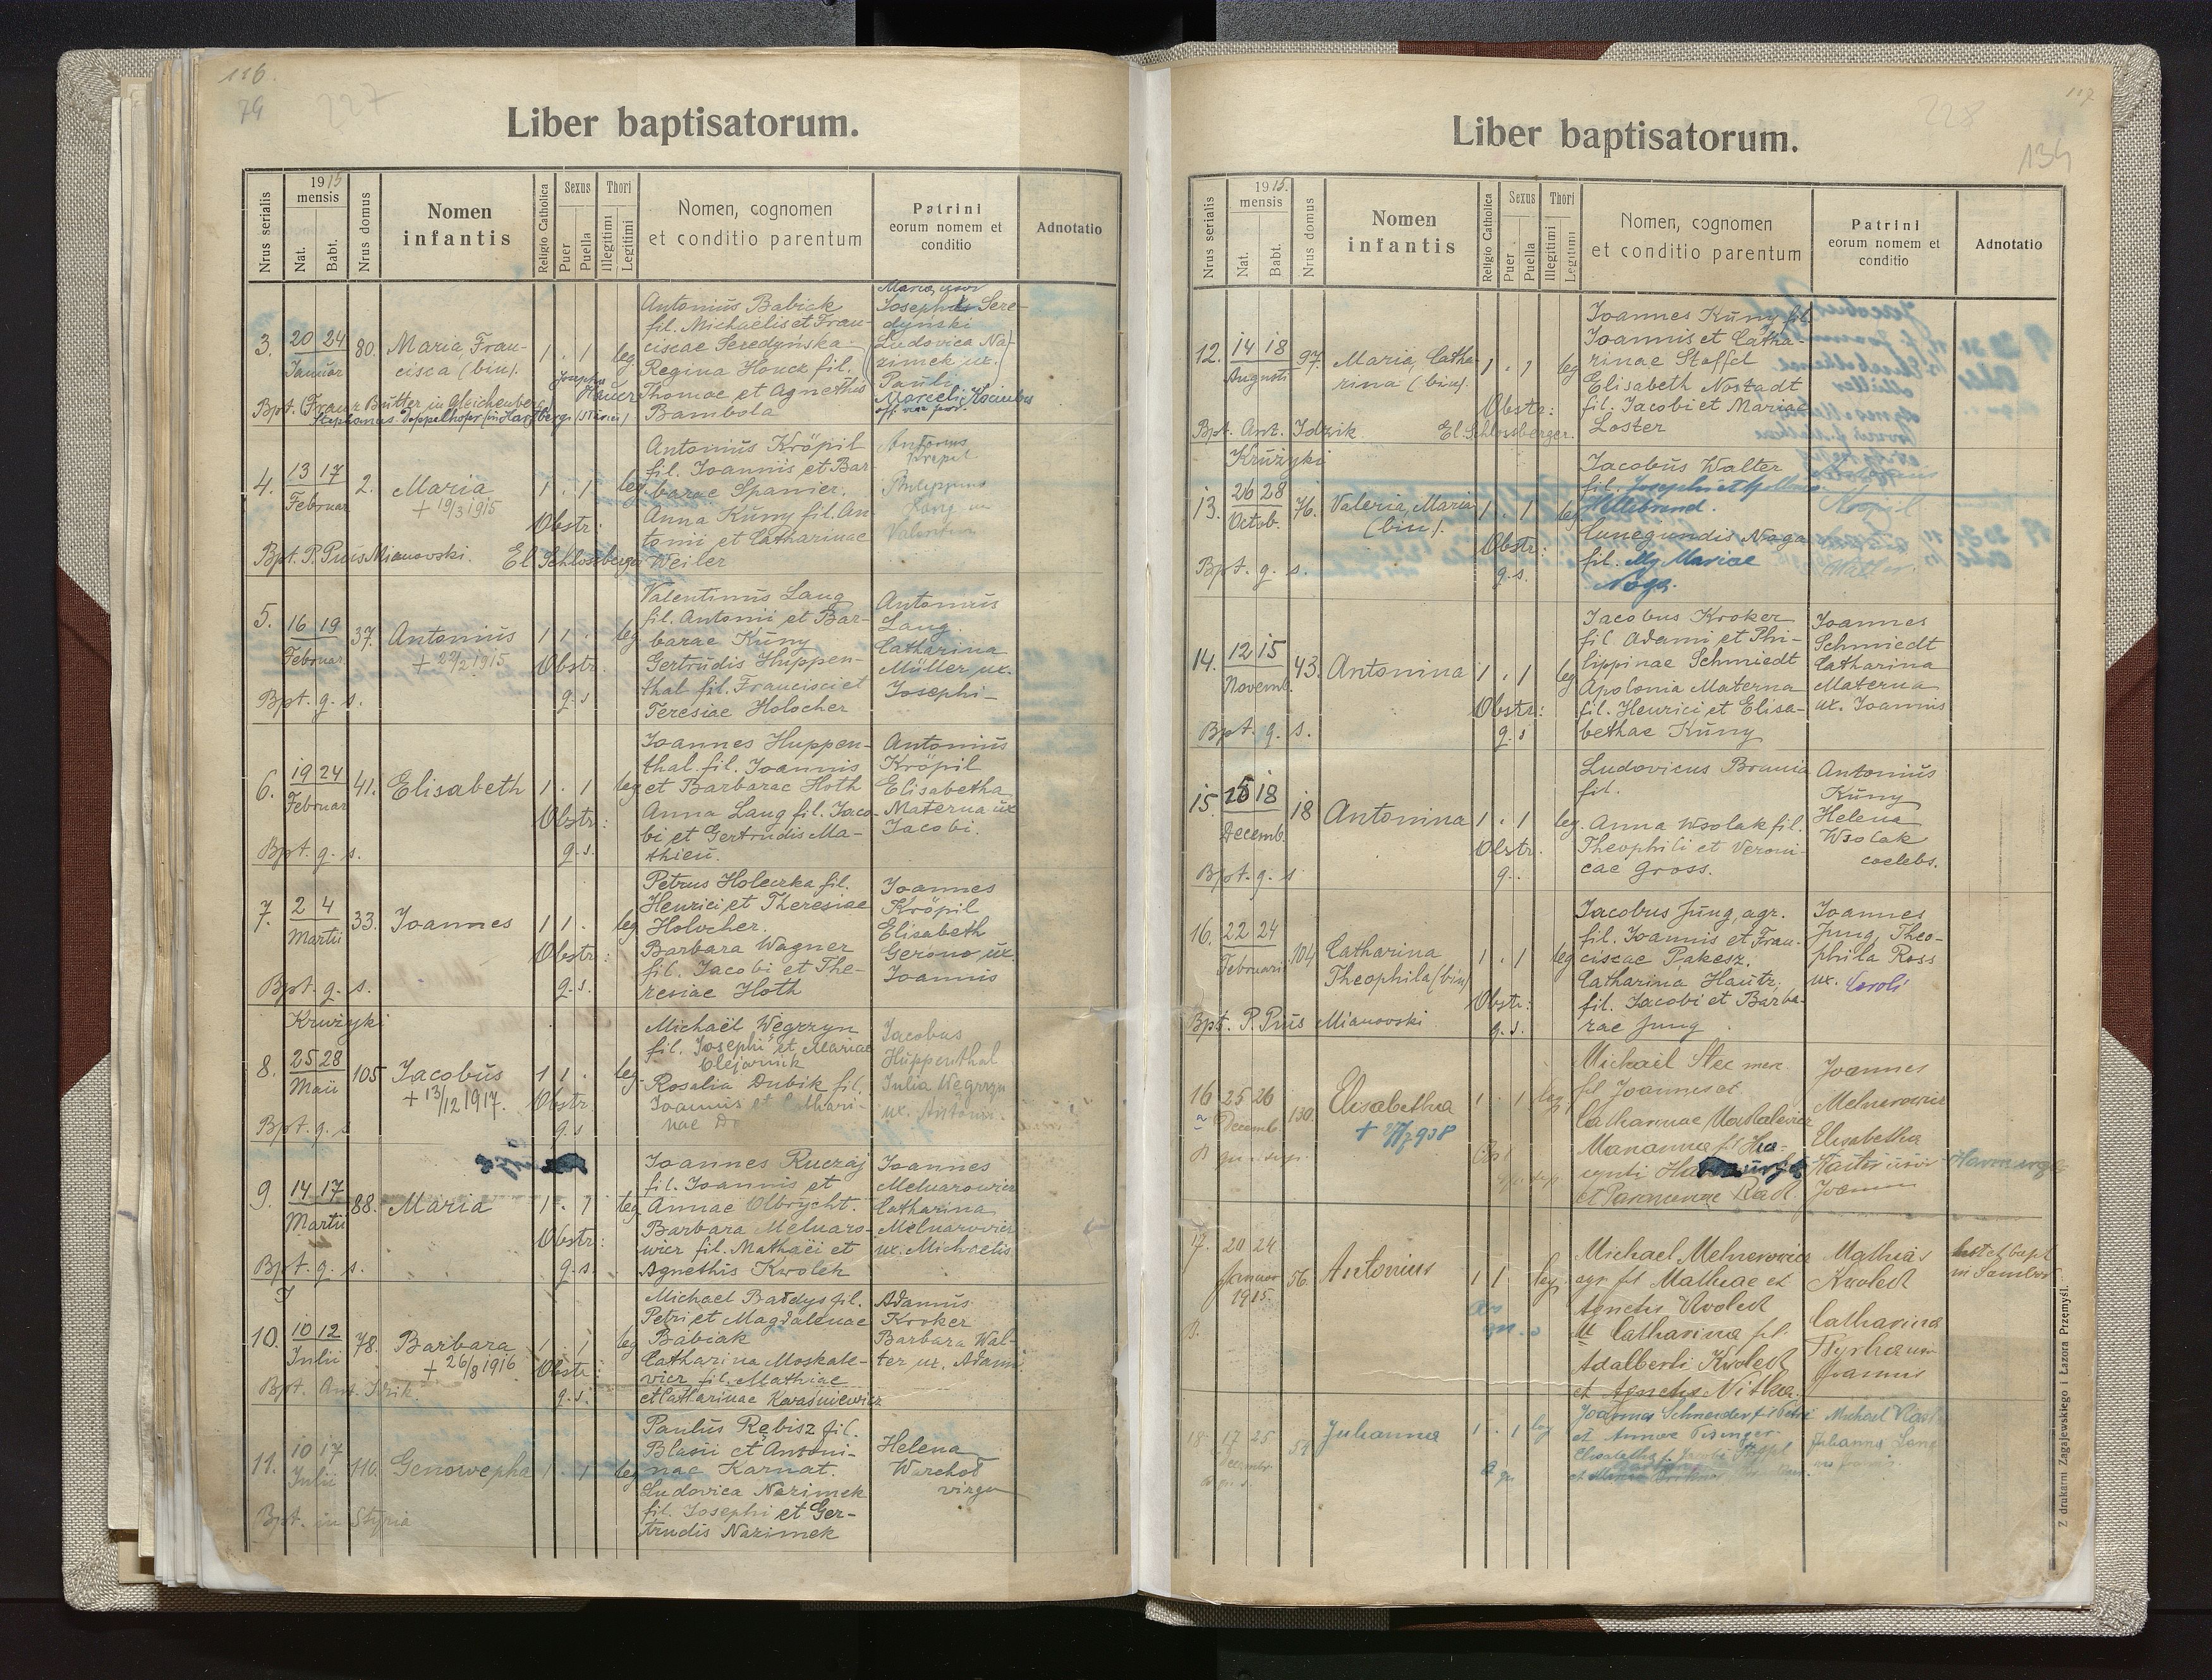 116.
79
227
Liber baptisatorum.
Nrus serialis
1915
mensis
Nat.
Babt.
Nrus domus
Nomen
infantis
Religio Catholica
Sexus
Puer
Puella
Thori
Illegitimi
Legitimi
Nomen, cognomen
et conditio parentum
Patrini
eorum nomem et
conditio
Adnotatio
3.
20 24
Januar
80.
Maria, Fran-
cisca (bin).
1 . 1 leg
Antonius Babick
fil. Michaelis et Fran-
ciscae Seredyńska.
Regina Houck fil.
Thomae et Agnethis
Bambola
Maria, uxor
Josephi Sere-
dyński
Ludovica Na-
zimek ux.
Pauli
Marceli
Bpt. (Franz Butter in Gleichenberg)
4.
13 17
Februar
2.
Maria
+ 19/3 1915
1 . 1 leg
Obstr:
Antonius Kröpil
fil. Joannis et Bar-
barae Spanier.
Anna Küny fil. An
tonii et Catharinae
Weiler
Antonius
Krepil
Philippina
Lang ux
Valentini
Bpt. P. Pius Mianovski. El. Schlossberger
5.
16 19
Februar
37.
Antonius
+ 22/2 1915
1 1 . leg
Obstr:
q. s
Valentinus Lang
fil. Antonii et Bar-
barae Küny
Gertrudis Huppen-
thal fil. Francisci et
Teresiae Holocher
Antonius
Lang
Catharina
Müller ux.
Josephi
Bpt. q. s.
6.
19 24
Februar
41.
Elisabeth
1 . 1 leg
Obstr:
q. s.
Joannes Huppen-
thal fil. Joannis
et Barbarae Hoth
Anna Lang fil. Jaco-
bi et Gertrudis Ma-
thieu.
Antonius
Kröpil
Elisabetha
Materna ux
Jacobi.
Bpt. q. s.
7.
2 4
Martii
33.
Joannes
1 1 . leg
Obstr:
q. s.
Petrus Holeczka fil.
Henrici et Theresiae
Holocher.
Barbara Wagner
fil. Jacobi et The-
resiae Hoth
Joannes
Kröpil
Elisabeth
Gerono ux.
Joannis
Bpt. q. s.
Krużyki
8.
25 28
Maii
105
Jacobus
+ 13/12 1917.
1 1 . leg
Obstr
q. s
Michaël Węgrzyn
fil. Josephi et Mariae
Olejarnik
Rosalia Dubik fil.
Joannis et Cathari-
nae
Jacobus
Huppenthal
Julia Węgrzyn
ux. Antonii
Bpt. q. s
9.
14 17
Martii
88.
Maria
1 . 1 leg
Obstr:
q. s.
Joannes Ruczaj
fil. Joannis et
Annae Olbrycht.
Barbara Melnaro-
wicz fil. Mathäei et
Agnethis Kwolek
Joannes
Melnarowicz
Catharina
Melnarowicz
ux. Michaelis
Bpt. q. s.
10.
10 12
Julii
78.
Barbara
+ 26/8 1916
1 . 1 leg
Obstr:
q. s.
Michael Bałdys fil.
Petri et Magdalenae
Babiak
Catharina Moskale-
vicz fil. Mathiae
et Catharinae Kwaśniewicz
Adamus
Kroker
Barbara Wal-
ter ux. Adami
Bpt. Ant. Idzik.
11.
10 17
Julii
110.
Genowepha
1 . 1 leg
Paulus Rębisz fil.
Blasii et Antoni-
nae Karnat.
Ludovica Nazimek
fil. Josephi et Ger-
trudis Nazimek
Helena
Warchoł
virgo
Bpt. in Styria
117
228
134
Liber baptisatorum.
Nrus serialis
1915.
mensis
Nat.
Babt.
Nrus domus
Nomen
infantis
Religio Catholica
Sexus
Puer
Puella
Thori
Illegitimi
Legitimi
Nomen, cognomen
et conditio parentum
Patrini
eorum nomem et
conditio
Adnotatio
12.
14 18
Augusti
97.
Maria, Catha-
rina (bin).
1 . 1 leg
Obstr:
El. Schlossberger.
Joannes Küny fil.
Joannis et Catha-
rinae Stoffel
Elisabeth Nostadt
fil. Jacobi et Mariae
Loster
Bpt. Ant. Idzik
Krużyki
13.
26 28
Octob.
76.
Valeria, Maria
(bin).
1 . 1 leg
Obstr:
q. s.
Jacobus Walter
fil. Josephi et
Hillibrand.
Cunegundis Noga
fil. Mariae
Noga.
Kröpil
Walter
Bpt. q. s.
14.
12 15
Novemb.
43.
Antonina
1 . 1 leg
Obstr:
q. s
Jacobus Kroker
fil. Adami et Phi-
lippinae Schmiedt
Apolonia Materna
fil. Henrici et Elisa-
bethae Küny
Joannes
Schmiedt
Catharina
Materna
ux. Joannis
Bpt. q. s.
15.
18
Decemb.
18
Antonina
1 . 1 leg.
Obstr.
q.
Ludovicus Brania
fil.
Anna Wsolak fil.
Theophili et Veroni-
cae Gross.
Antonius
Küny
Helena
Wsolak
coelebs.
Bpt. q. s
16.
22 24
Februari
104
Catharina
Theophila (bin)
1 . 1 leg
Obstr:
q. s.
Jacobus Jung, agr.
fil. Joannis et Fran-
ciscae Pakesz.
Catharina Hautz,
fil. Jacobi et Barba-
rae Jung
Joannes
Jung, Theo-
phila Ross
ux. Caroli
Bpt. P. Pius Mianovski
16
a
25 26
Decemb.
130.
Elisabetha
1 . 1 leg
Michael Stec
fil Joannes et
Catharinae Moskalewicz
Marianna fil Hya-
cynti
et
Joannes
Melnerowicz
Elisabetha
Kaiter uxor
Joannis
17.
20 24
Januar
1915.
56.
Antonius
1 1 leg.
Michael Melnerowicz
agr. fil Mathiae et
Agnetis Kwolek
Catharina fil
Adalberti Kwolek
et Agnetis Nitka.
Mathias
Kwolek
Catharina
uxor
Joannis
in Sambor
B.
18
17 25
Decembr.
51
Juhanna
1 . 1 leg
Joannes Schneider f. Petri
et Annae
Elisabetha f. Jacobi Stoffel
Michael
Juhanna Lang
Z drukarni Zagajewskiego i Łazora Przemyśl.